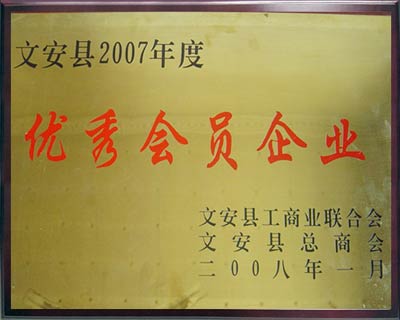 文安县2007年度
优秀会员企业
文安县工商业联合会
文安县总商会
二00八年一月